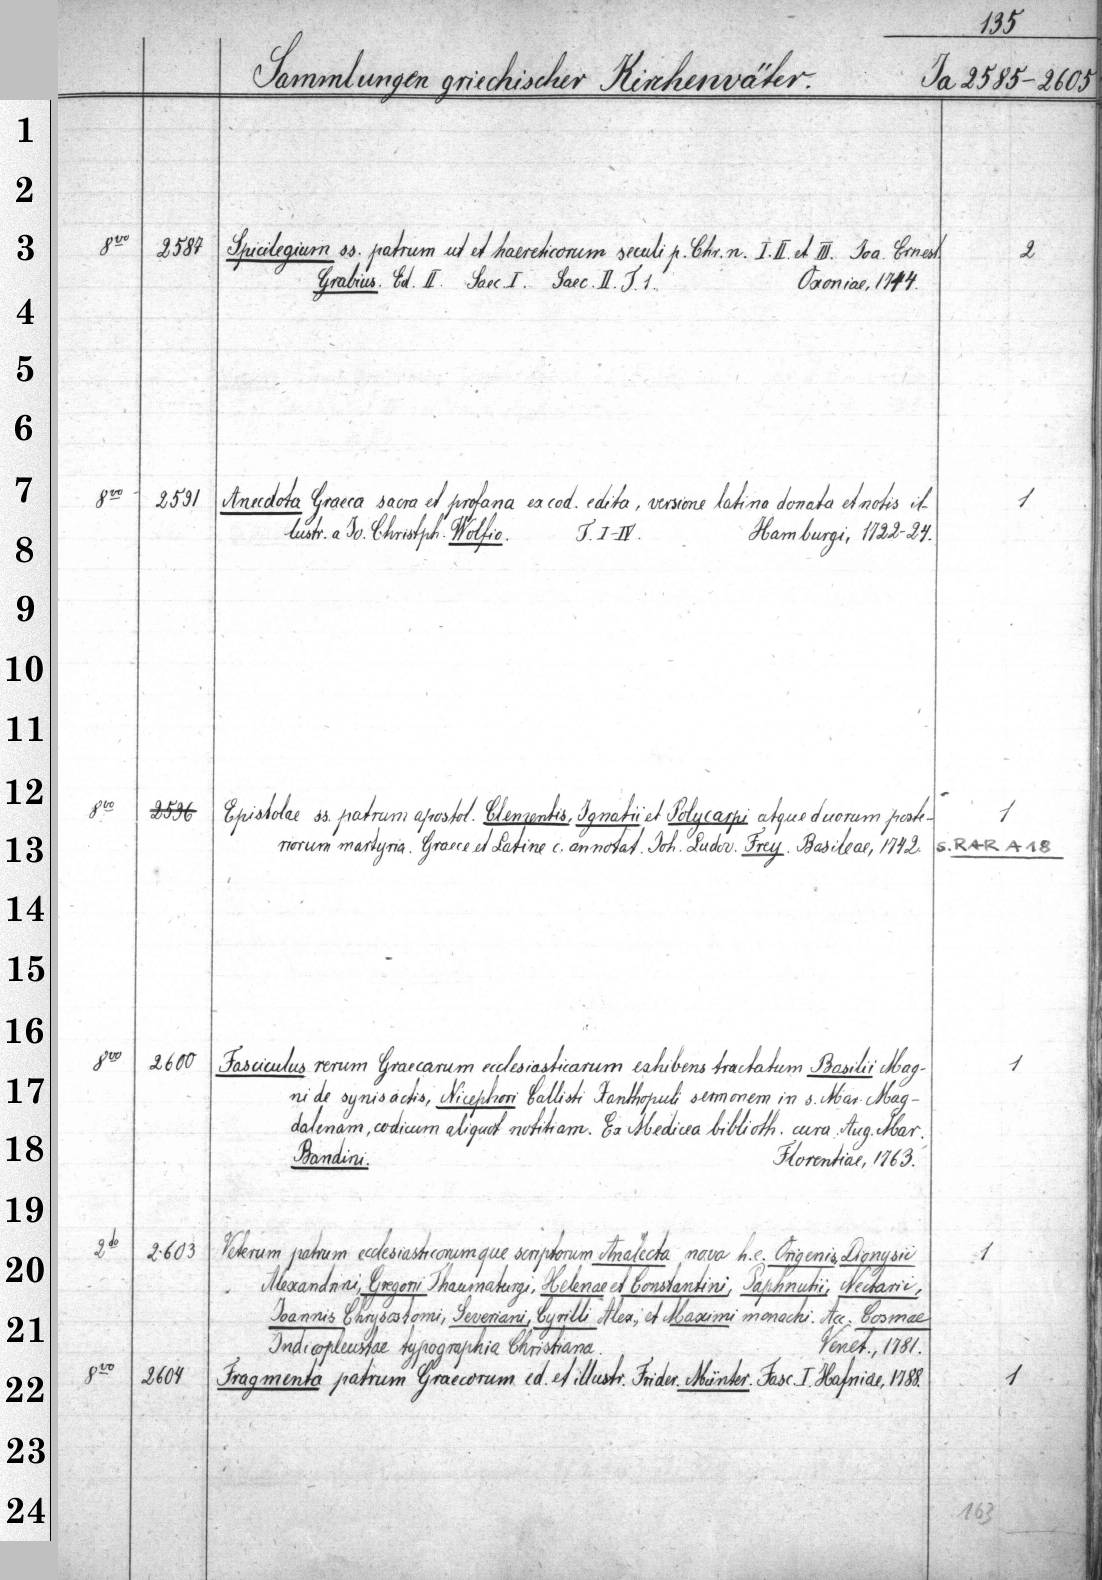 135
Sammlungen griechischer Kirchenväter. Ja 2585-2605
1
2
3 8vo 2587 Spicilegium ss. patrum ut et haereticorum seculi p. Chr. n. I. II. et III. Joa. Ernest. 2
Grabius. Ed. II. Saec. I. Saec. II. T. 1. Oxoniae, 1744.
4
5
6
7 8vo 2591 Anecdota Graeca sacra et profana ex cod. edita, versione latina donata et notis il- 1
lustr. a Jo. Christph. Wolfio. T. I-IV. Hamburgi, 1722-24.
8
9
10
11
12 8vo 2596 Epistolae ss. patrum apostol. Clementis, Ignatii et Polycarpi atque duorum poste- 1
13 riorum martyria. Graece et Latine c. annotat. Joh. Ludov. Frey. Basileae, 1742. s. RAR A 18
14
15
16
8vo 2600 Fasciculus rerum Graecarum ecclesiasticarum exhibens tractatum Basilii Mag- 1
17 ni de synisactis, Nicephori Callisti Xanthopuli sermonem in s. Mar. Mag-
dalenam, codicum aliquot notitiam. Ex Medicea biblioth. cura Aug. Mar.
18 Bandini. Florentiae, 1763.
19
2do 2603 Veterum patrum ecclesiasticorumque scriptorum Analecta nova h. e. Origenis, Dionysii 1
20 Alexandrini, Gregorii Thaumaturgi, Helenae et Constantini, Paphnutii, Nectarii,
21 Joannis Chrysostomi, Severiani, Cyrilli Alex., et Maximi monachi. Acc. Cosmae
Indicopleustae typographia Christiana. Venet., 1781.
22 8vo 2604 Fragmenta patrum Graecorum ed. et illustr. Frider. Münter. Fasc. I. Hafniae, 1788. 1
23
24
163